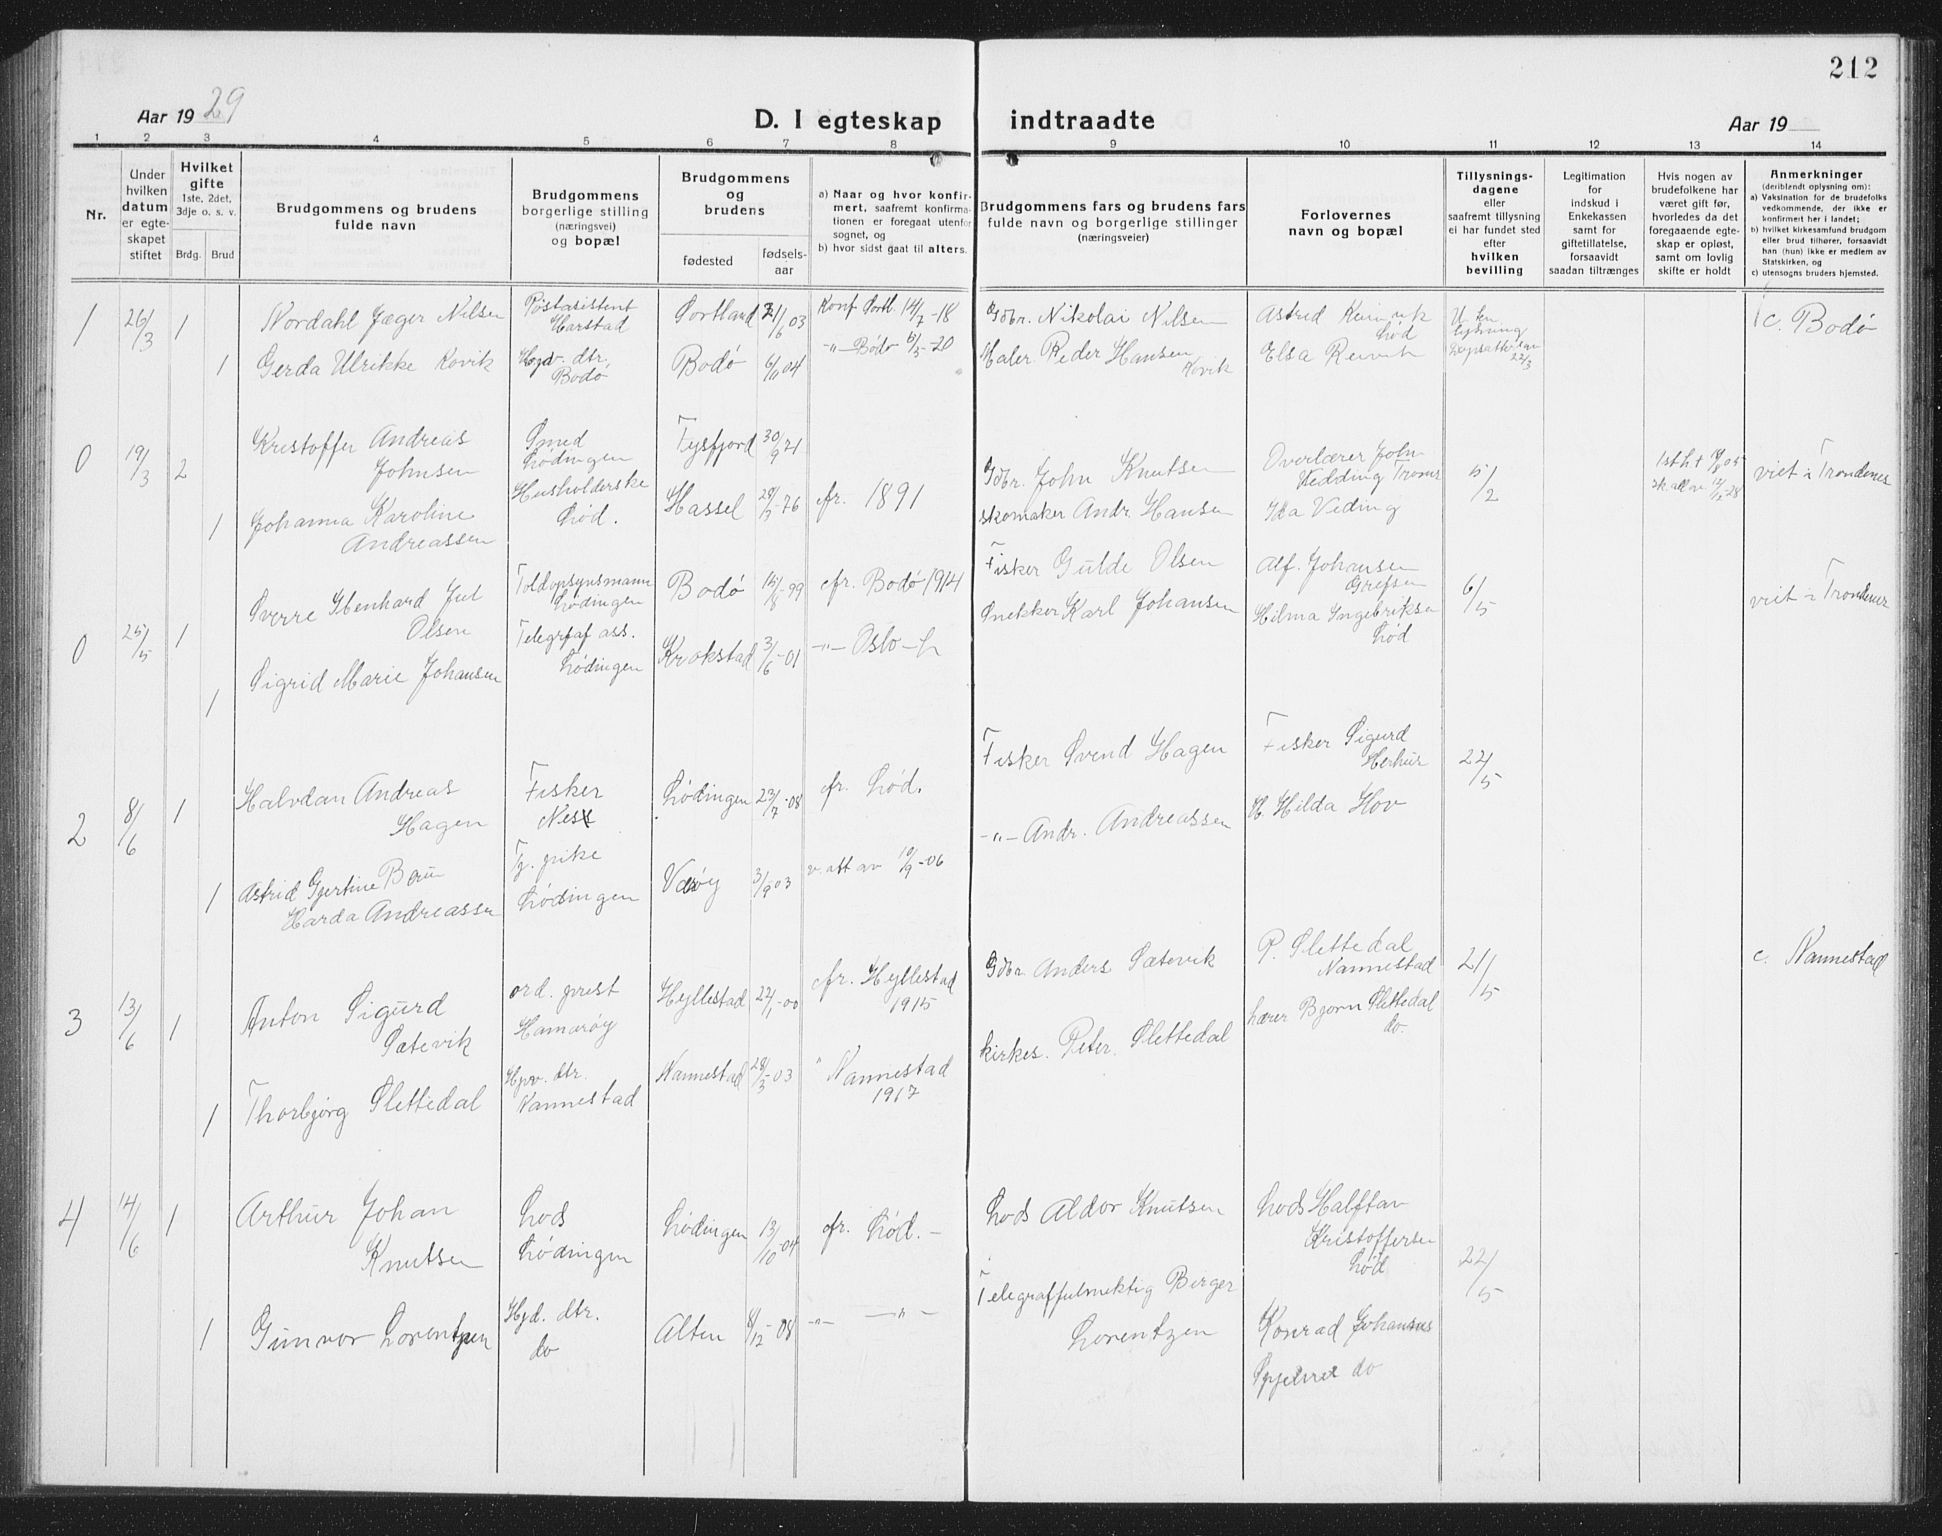 212
Aar 1929
D. I egteskap indtraadte
Aar 19
1 2 3 4 5 6 7 8 9 10 11 12 13 14
Nr.
Under hvilken datum er egteskapet stiftet
Hvilket gifte
1ste, 2det, 3dje o. s. v.
Brdg. Brud
Brudgommens og brudens fulde navn
Brudgommens borgerlige stilling (næringsvei) og bopæl
Brudgommens og brudens
fødested
fødselsaar
a) Naar og hvor konfirmert, saafremt konfirmationen er foregaat utenfor sognet, og
b) hvor sidst gaat til alters.
Brudgommens fars og brudens fars fulde navn og borgerlige stillinger (næringsveier)
Forlovernes navn og bopæl
Tillysningsdagene eller saafremt tillysning ei har fundet sted efter hvilken bevilling
Legitimation for indskud i Enkekassen samt for giftetillatelse, forsaavidt saadan tiltrænges
Hvis nogen av brudefolkene har været gift før, hvorledes da det foregaaende egteskap er opløst, samt om lovlig skifte er holdt
Anmerkninger
(deriblandt oplysning om):
a) Vaksination for de brudefolks vedkommende, der ikke er konfirmert her i landet;
b) hvilket kirkesamfund brudgom eller brud tilhører, forsaavidt han (hun) ikke er medlem av Statskirken, og
c) utensogns bruders hjemsted.
1 26/3 1 Nordahl Jæger Nilsen Postasistent Harstad Sortland 21/6 03 Konf Sortl. 14/7-18 Gdbr. Nikolai Nilsen Astrid Lød c. Bodø
1 Gerda Ulrikke Rovik Bodø Bodø 6/11 04 -"- Bodø 20 Maler Peder Hansen Rovik Elsa 22/3
0 19/3 2 Kristoffer Andreas Johnsen Smed Lødingen Tysfjord 30/9 71 Gdbr. John Knutsen Overlærer John Vedding Troms 5/2 viet i Trondenes
1 Johanna Karoline Andreassen Husholderske Lød. Hassel 76 cfr. 1891 skomaker Andr. Hansen Ida Veding
0 25/5 1 Sverre Ebenhard Jul Olsen Toldopsynsmann Lødingen Bodø 15/8-99 cfr. Bodø 1914 Fisker Gulde Olsen Alf. Johansen Grefsen 6/5 viet i Trondenes
1 Sigrid Marie Johansen Telegraf ass. Lødingen Krokstad 3/6-01 -"- Oslo Snekker Karl Johansen Hilma Ingebriksen Lød
2 8/6 1 Halvdan Andreas Hagen Fisker Ness Lødingen 23/7-08 cfr. Lød. Fisker Svend Hagen Fisker Sigurd 22/5
1 Astrid Gjertine Harda Andreassen Tj. pike Lødingen Værøy 3/9 03 v. att av 06 -"- Andr. Andreassen Hilda Hov
3 13/6 1 Anton Sigurd Sætevik ord. prest Hamarøy Hyllestad 22/1-00 cfr. Hyllestad 1915 Gdbr. Anders Sætevik P. Slettedal Nannestad 21/5 c. Nannestad
1 Thorbjørg Slettedal Hpv. dtr. Nannestad Nannestad 28/3-03 " Nannestad 1917 kirkes. Peter Slettedal lærer Bjørn Slettedal do.
4 14/6 1 Arthur Johan Knutsen Lods Lødingen Lødingen 13/10-04 cfr. Lød. - Lods Aldor Knutsen Lods Halftan Kristoffersen Lød 22/5
1 Gunvor Lorentzen Hjd. dtr. do Alten 6/12-08 -"- -"- Telegraffulmektig Birger Lorentzen Konrad Johansen do